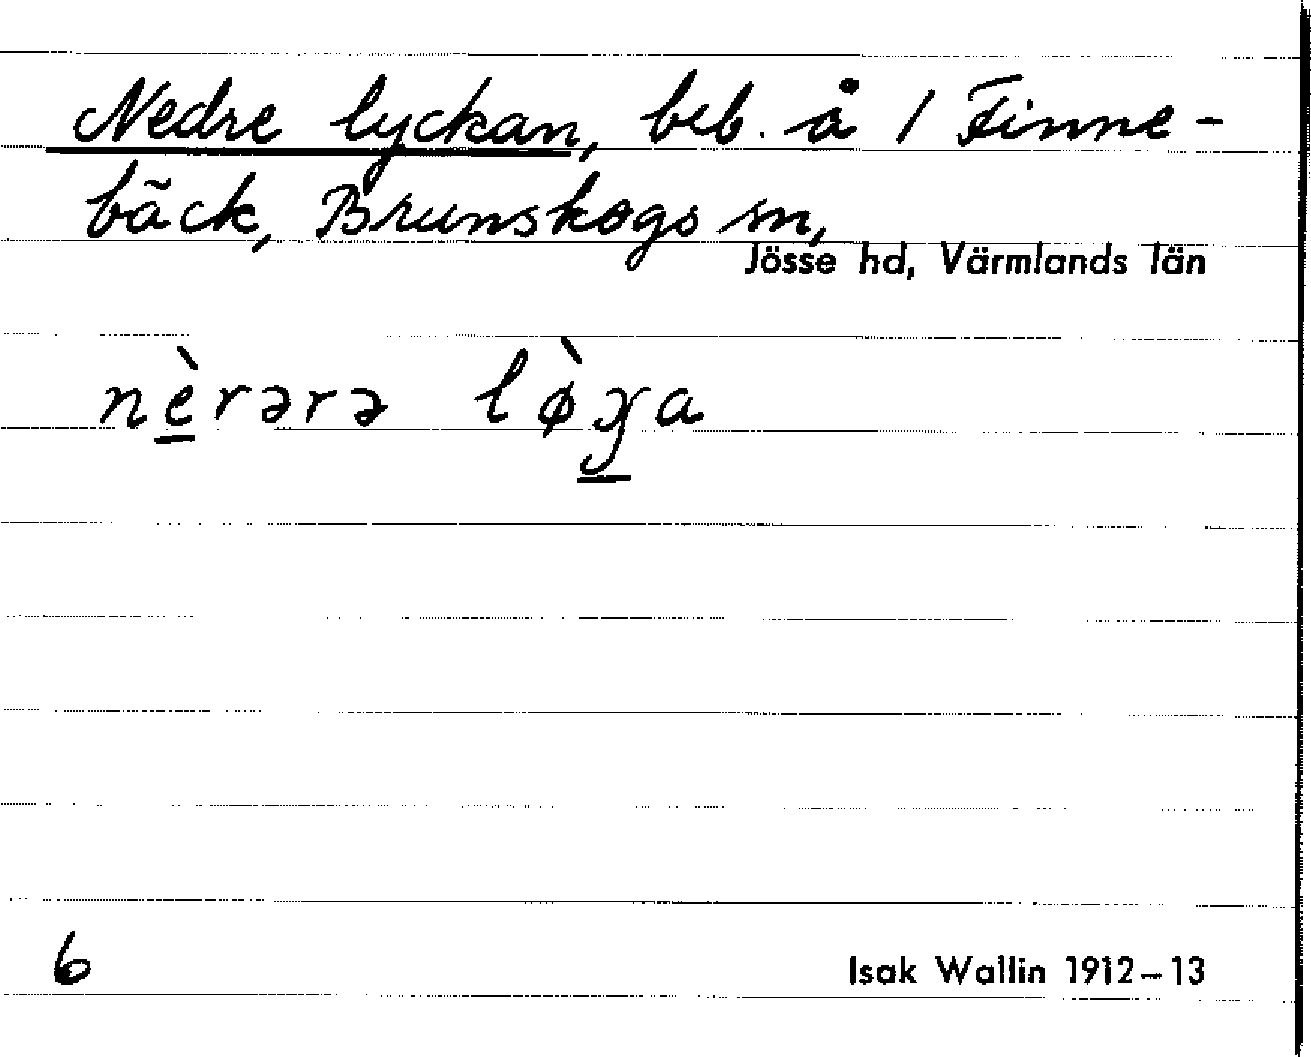 Nedre lyckan, beb. å 1 Finne-
bäck, Brunskogs sn,
Jösse hd, Värmlands län
nèrərə
6
Isak Wallin 1912–13